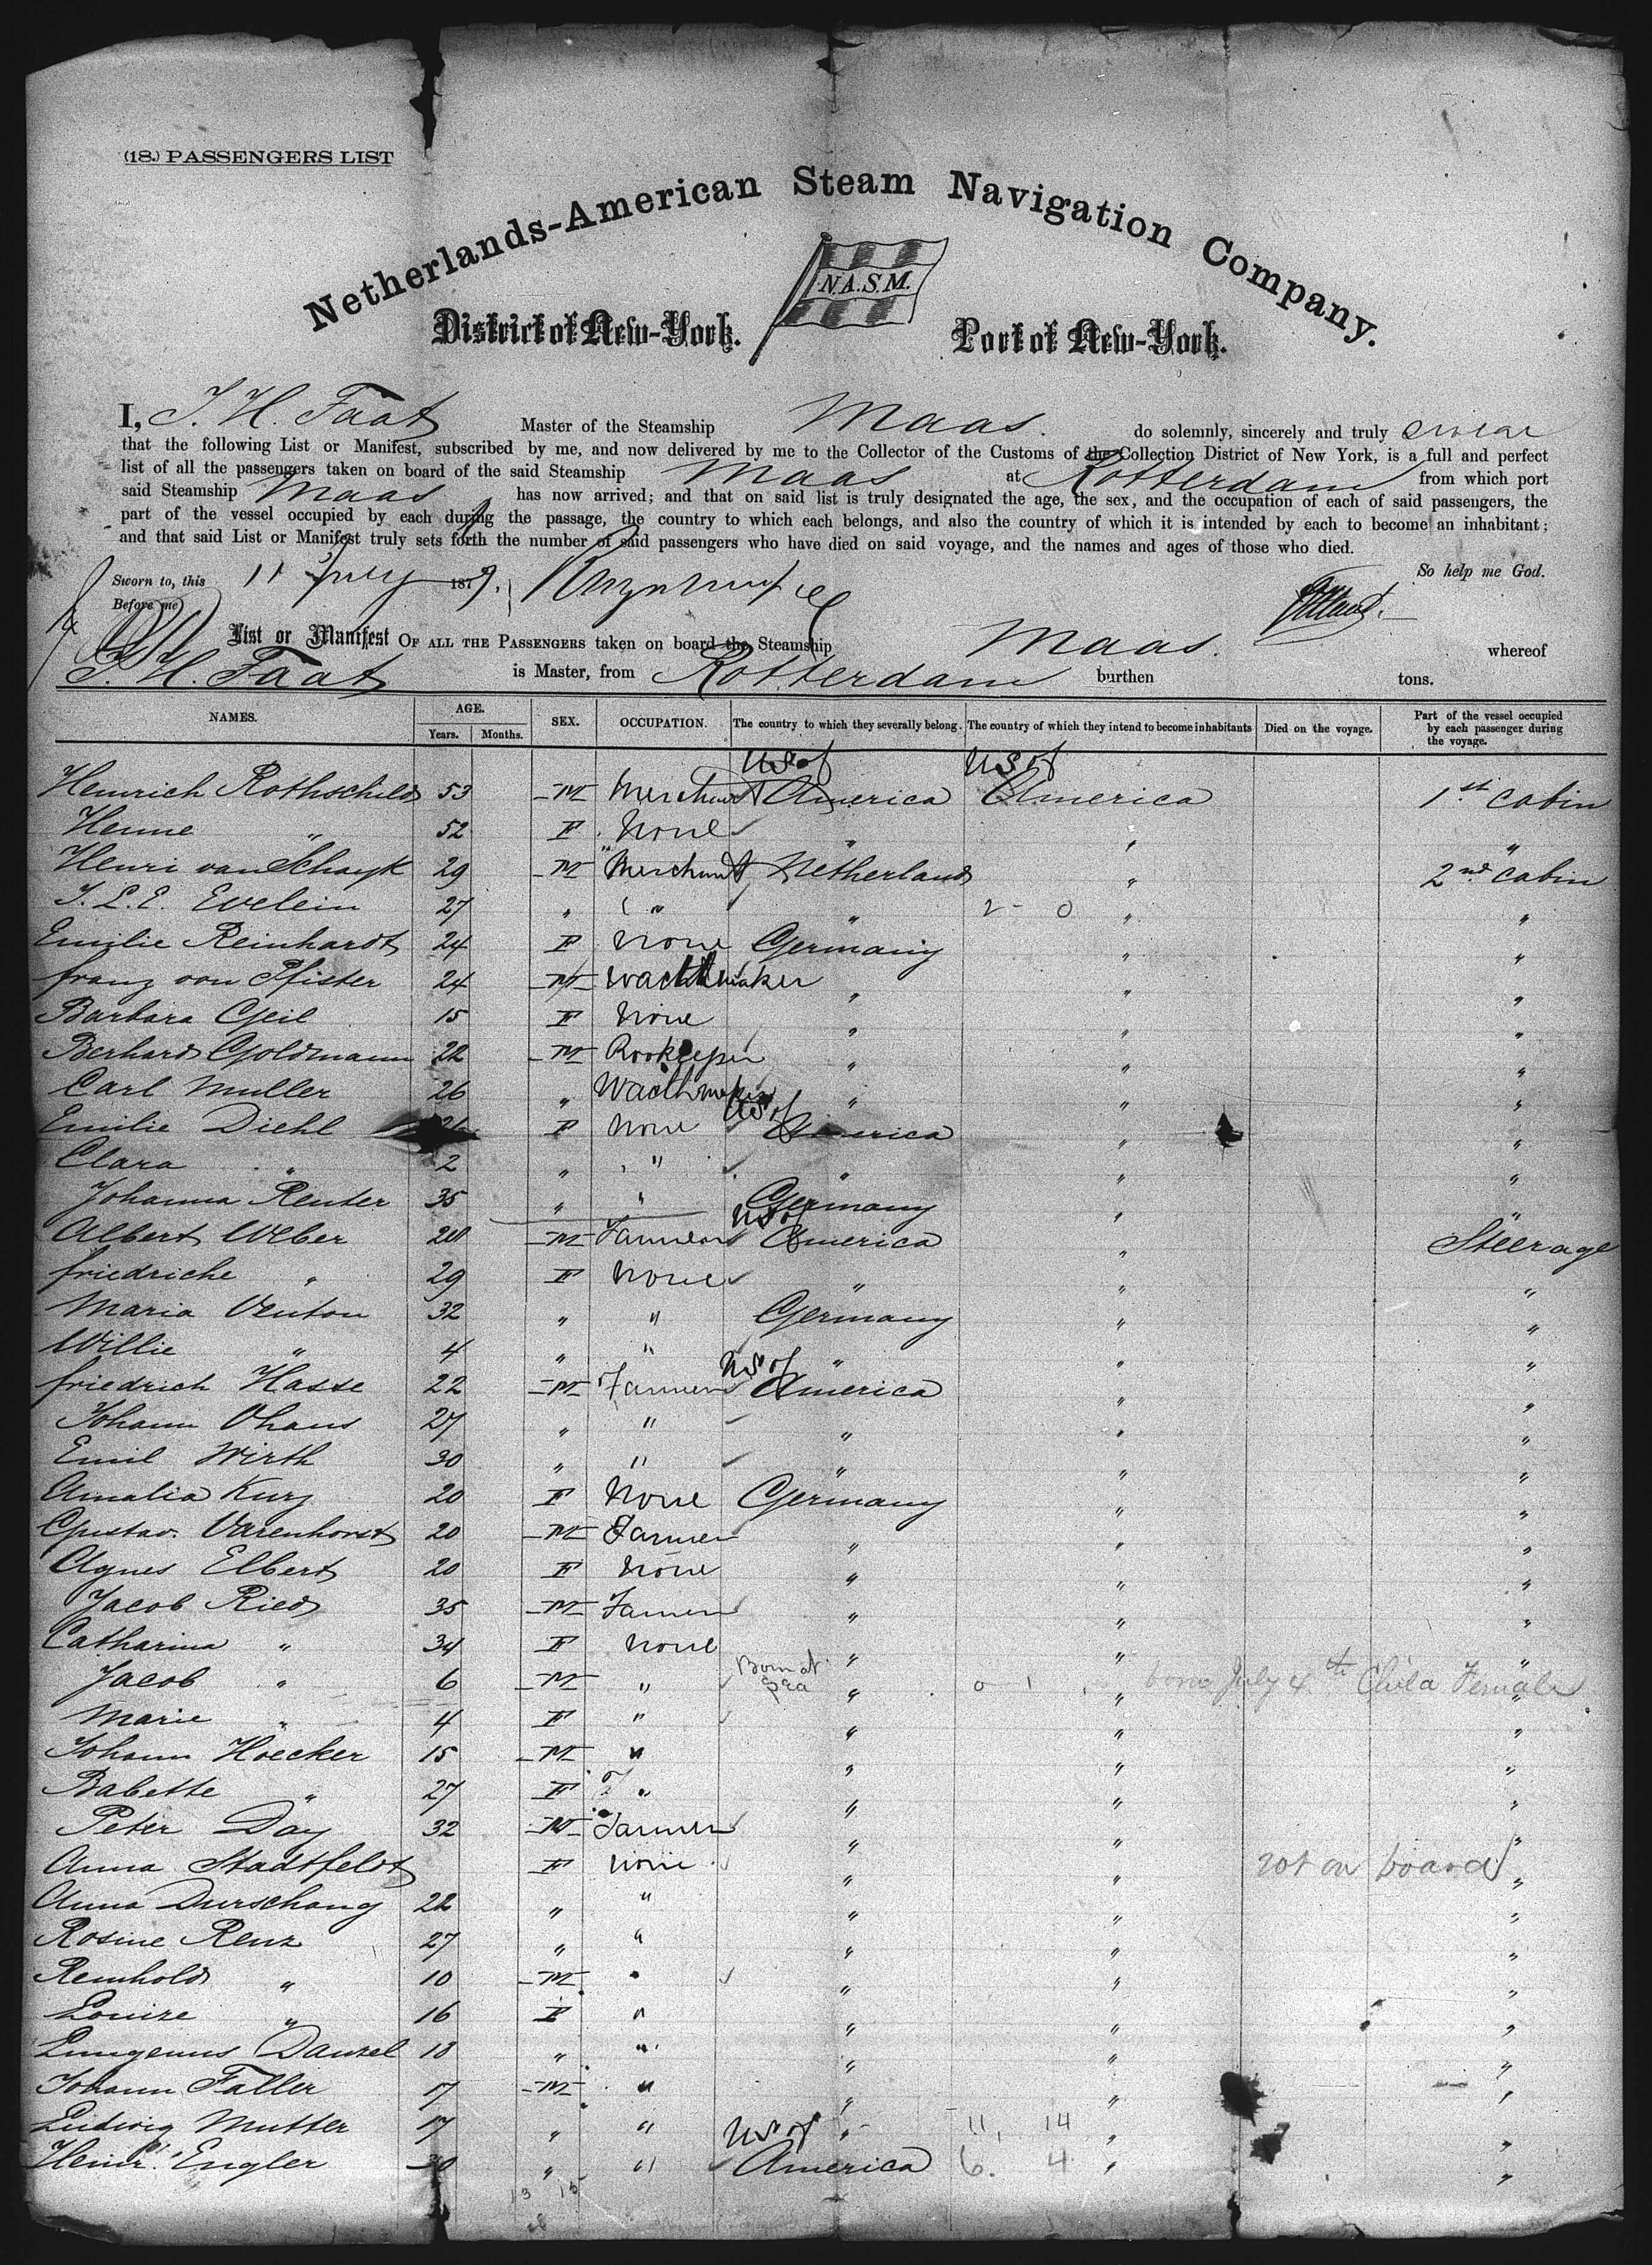 (18.) PASSENGERS LIST
Netherlands-American Steam Navigation Company.
N.A.S.M.
District of New-York. Port of New-York.
I, J. H. Taat Master of the Steamship Maas. do solemnly, sincerely and truly swear
that the following List or Manifest, subscribed by me, and now delivered by me to the Collector of the Customs of the Collection District of New York, is a full and perfect
list of all the passengers taken on board of the said Steamship Maas at Rotterdam from which port
said Steamship Maas has now arrived; and that on said list is truly designated the age, the sex, and the occupation of each of said passengers, the
part of the vessel occupied by each during the passage, the country to which each belongs, and also the country of which it is intended by each to become an inhabitant;
and that said List or Manifest truly sets forth the number of said passengers who have died on said voyage, and the names and ages of those who died.
So help me God.
Sworn to, this 11 July 1879.
Before me
List or Manifest OF ALL THE PASSENGERS taken on board the Steamship Maas. whereof
J. H. Taat is Master, from Rotterdam burthen tons.
NAMES. AGE. Years. Months. SEX. OCCUPATION. The country to which they severally belong. The country of which they intend to become inhabitants Died on the voyage. Part of the vessel occupied by each passenger during the voyage.
US of US of
Heinrich Rothschild 53 M Merchant America America 1st cabin
Henne " 52 F None " " "
Henri van Schayk 29 M Merchant Netherlands " 2nd cabin
J. L. E. Evelein 27 " " " 2 - 0 " "
Emilie Reinhardt 24 F None Germany " "
franz von Pfister 24 M wacthmaker " " "
Barbara Geil 15 F None " " "
Berhard Goldmann 22 M Bookeeper " " "
Carl Muller 26 " Wacthmaker " " "
Emilie Diehl F None US of America " "
Clara " 2 " " " " "
Johanna Reuter 35 " " Germany " "
Albert Weber 28 M Farmer US of America " Steerage
friedriche " 29 F None " " "
Maria Venton 32 " " Germany " "
Willie " 4 " " " " "
friedrich Hasse 22 M Farmer US of America " "
Johann Ohaus 27 " " " " "
Emil Wirth 30 " " " " "
Amalia Kurz 20 F None Germany " "
Gustav. Varenhorst 20 M Farmer " " "
Agnes Elbert 20 F None " " "
Jacob Ried 35 M Farmer " " "
Catharina " 34 F None " " "
Jacob " 6 M " Born at sea " 0 1 " born July 4th Child Female "
Marie " 4 F " " " "
Johann Hoecker 15 M " " " "
Babette " 27 F " " " "
Peter Day 32 M Farmer " " "
Anna Stadtfeldt F None " " not on board "
Anna Durschang 22 " " " " "
Rosine Renz 27 " " " " "
Reinhold " 10 M " " " "
Louise " 16 F " " " "
Eungenus Danzel 18 " " " " "
Johann Faller 17 M " " " "
Ludwig Mutter 17 " " " 11, 14 " "
Heinr. Engler 30 " " US of America 6. 4 " "
13 15